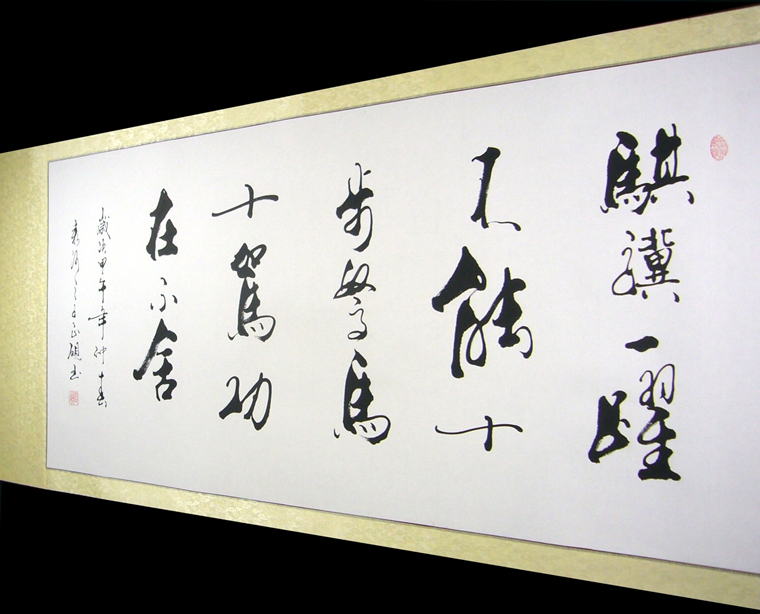 騏驥一躍
不能十
步駑馬
十駕功
在不舍
歲次甲午年仲春
王正碩书